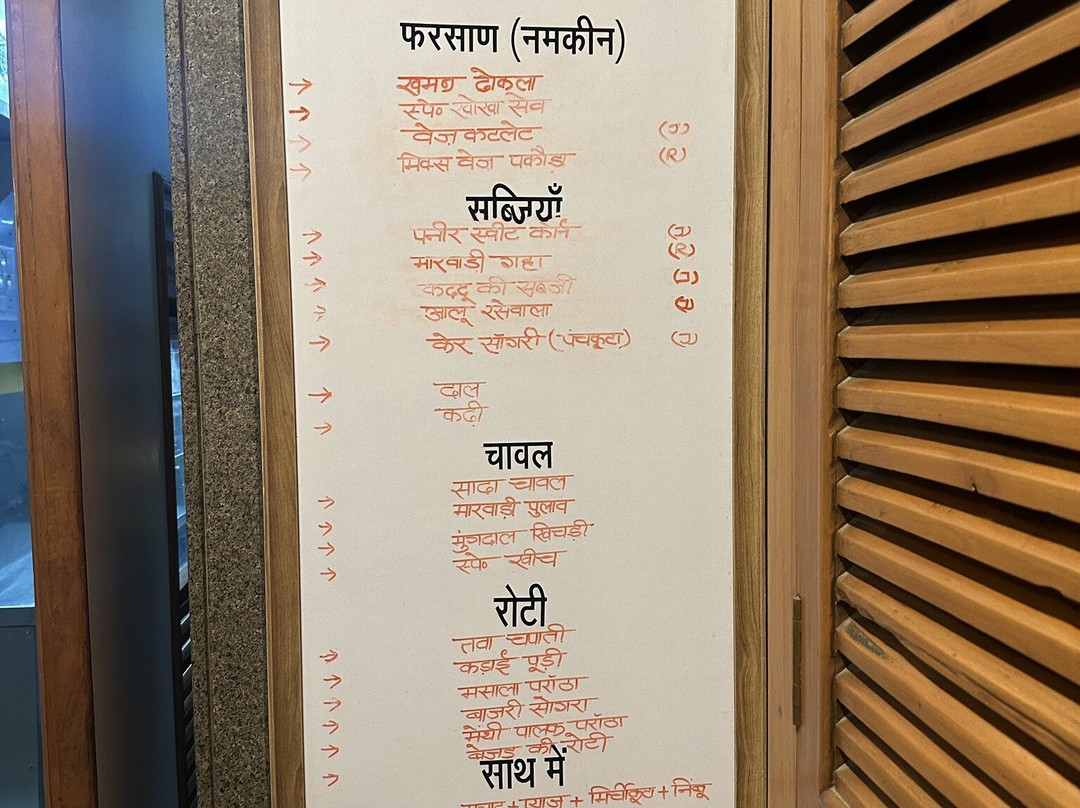 फरसाण (नमकीन)
→ खमण ढोकला
→ स्पे॰ खोखा सेव
→ वेज़ कटलेट (J)
→ मिक्स वेज पकौड़ा (R)
सब्जियाँ
→ पनीर स्वीट कॉर्न (J)
→ मारवाड़ी गट्टा (R)
→ कददू की सब्जी (J)
→ आलू रसेवाला
→ केर सॉगरी (पंचकूटा) (J)
→ दाल
→ कढ़ी
चावल
→ सादा चावल
→ मारवाड़ी पुलाव
→ मुंगदाल खिचड़ी
→ स्पे॰ खीच
रोटी
→ तवा चपाती
→ कड़ाई पूड़ी
→ मसाला परॉठा
→ बाजरी सोगरा
→ मेथी पालक परॉठा
→ बेजड की रोटी
साथ में
+ प्याज + मिर्चीकूटा + निंबू